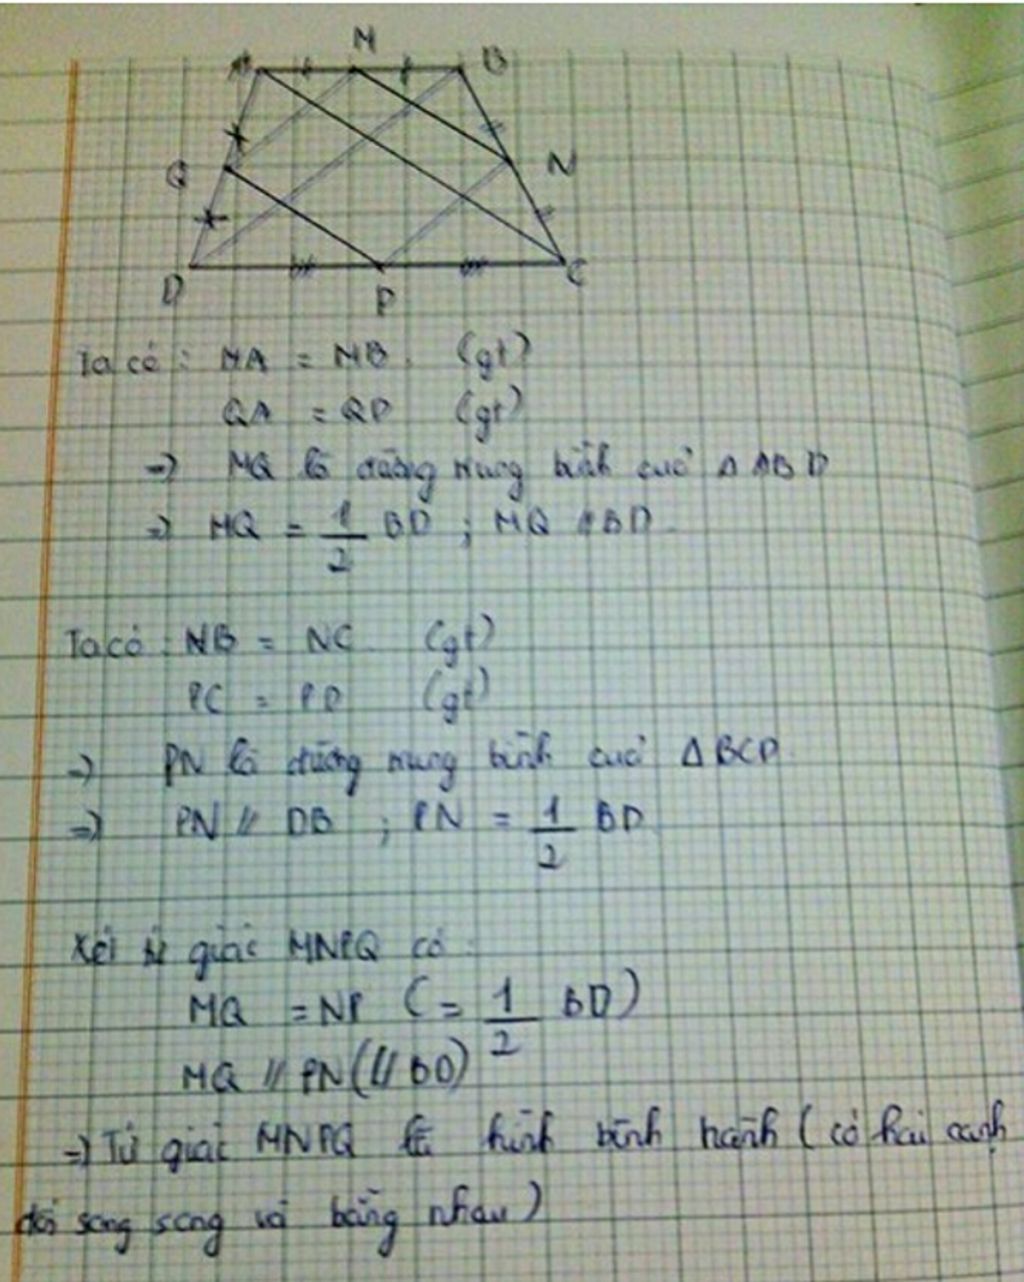 M
A B
Q N
D P C
Ta có : MA = MB. (gt)
QA = QD (gt)
=> MQ là đường trung bình của Δ ABD
=> MQ = 1/2 BD ; MQ // BD
Ta có : NB = NC (gt)
PC = PD (gt)
=> PN là đường trung bình của Δ BCD
=> PN // DB ; PN = 1/2 BD
Xét tứ giác MNPQ có :
MQ = NP ( = 1/2 BD )
MQ // PN (// BD)
=> Tứ giác MNPQ là hình bình hành ( có hai cạnh
đối song song và bằng nhau )